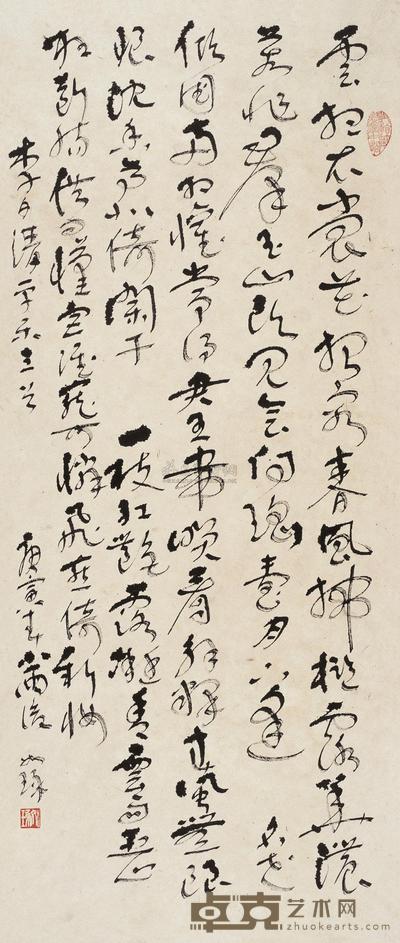 雲想衣裳花想容春風拂檻露華濃
若非群玉山頭見會向瑤臺月下逢 名花
傾國兩相歡常得君王帶笑看解釋春風無限
恨沈香亭北倚闌干 一枝紅艷露凝香雲雨巫山
枉斷腸借問漢宮誰可憐飛燕倚新妝
李白清平樂三首
庚寅年
卓克艺术网
www.zhuokearts.com